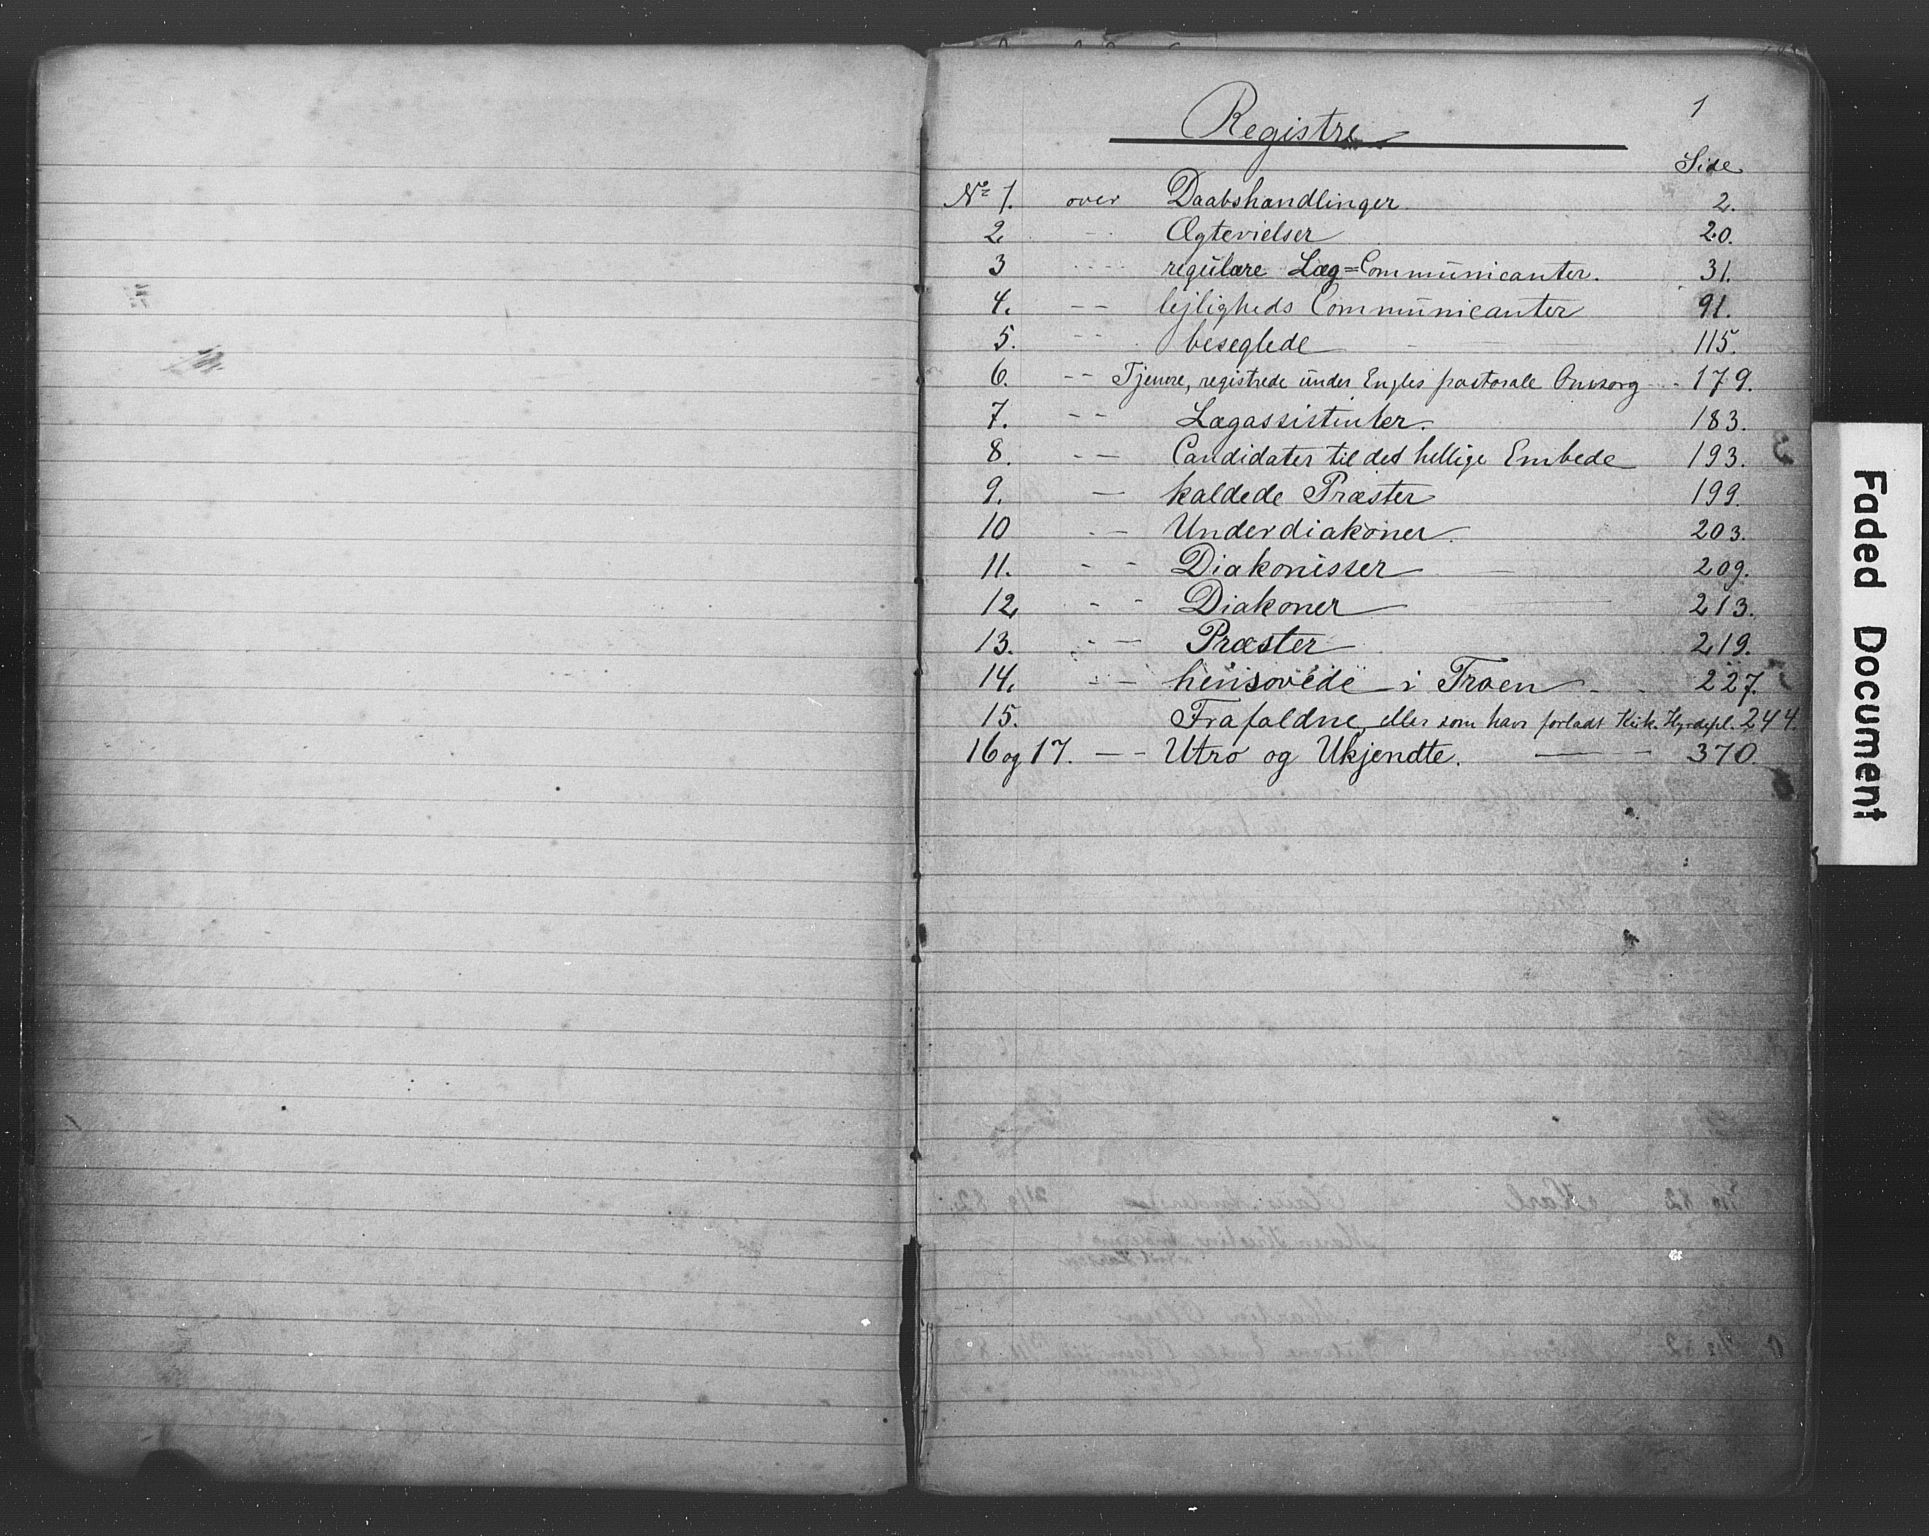 1
Registre
Side
No 1. over Daabshandlinger 2.
2 -- Ægtevielser 20.
3 ---- regulære Læg=Communicanter. 31.
4. -- lejligheds Communicanter 91.
5. -- beseglede 115.
6. -- Tjenere, registrede under Engles pastorale Omsorg -- 179.
7. -- Lægassistenter. 183.
8. -- Candidater til det hellige Embede 193.
9. - kaldede Præster 199.
10 -- Underdiakoner 203.
11. -- Diakonisser 209.
12 -- Diakoner 213.
13. -- Præster 219.
14. -- hensovede i Troen 227.
15. Frafaldne, eller som have forladt Kirk. Hyrdepl. 244.
16 og 17. -- Utro og Ukjendte. -- 370.
Faded Document